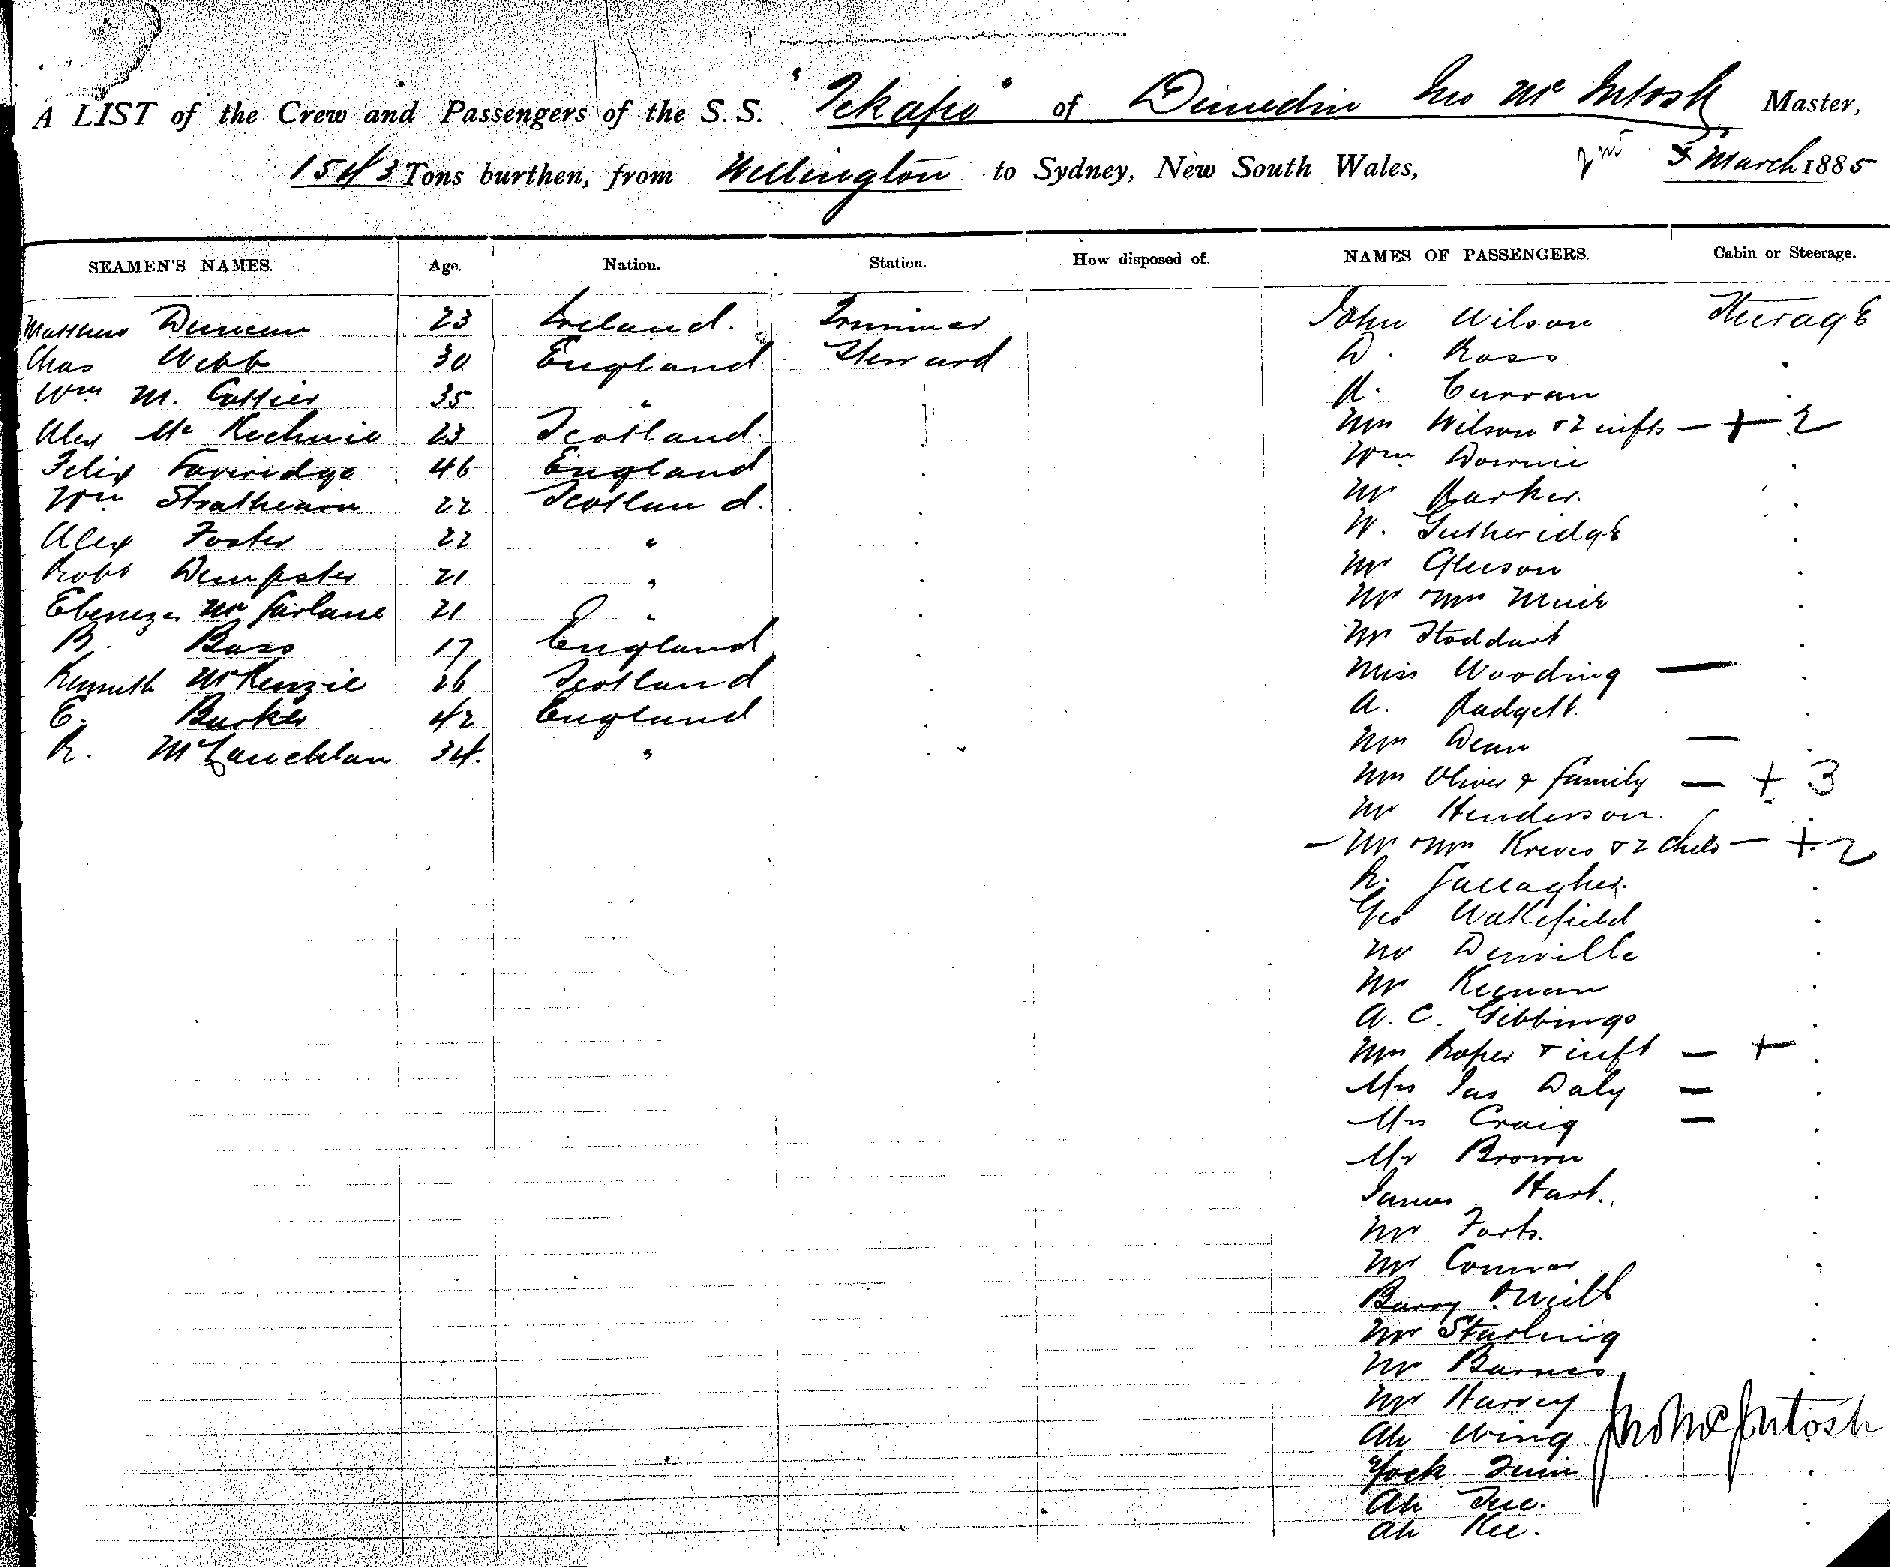 A LIST of the Crew and Passengers of the S.S. "Tekapo" of Dunedin Jno McIntosh Master,
1543 Tons burthen, from Wellington to Sydney, New South Wales, 5 March 1885
SEAMEN'S NAMES. Age. Nation. Station. How disposed of. NAMES OF PASSENGERS. Cabin or Steerage.
Matthew Duncan 23 Ireland. Trimmer John Wilson Steerage
Chas Webb 30 England Steward D. Ross
Wm M. Cottier 35 " A. Curran
Alex McKechnie 23 Scotland Mrs Wilson & 2 infts — + 2
Felix 46 England Wm Downie
Wm Strathearn 22 Scotland. Mr Barker.
Alex Foster 22 " W. Gutheridge
Robt Dempster 21 " Mr Gleeson
Ebenezer McFarlane 21 " Mr & Mrs Muir
R. Bass 17 England Mr Stoddart
Kenneth McKenzie 26 Scotland Miss Wooding —
E. Barker 42 England A. Padgett.
R. McLauchlan 34. " Mrs Dean —
Mrs Oliver & family — + 3
Mr Henderson.
— Mr & Mrs & 2 Chds — + 2
R. Gallagher.
Geo Wakefield
Mr Denville
Mr Keenan
A. C. Gibbings
Mrs Roper & inft — +
Mrs Jas Daly —
Mrs Craig —
Mr Brown
James Hart.
Mr
Mr Connor
Barry O'Neill
Mr Starling
Mr Barnes
Mr Harvey
Ah Wing Jno McIntosh
Yock
Ah
Ah Kee.